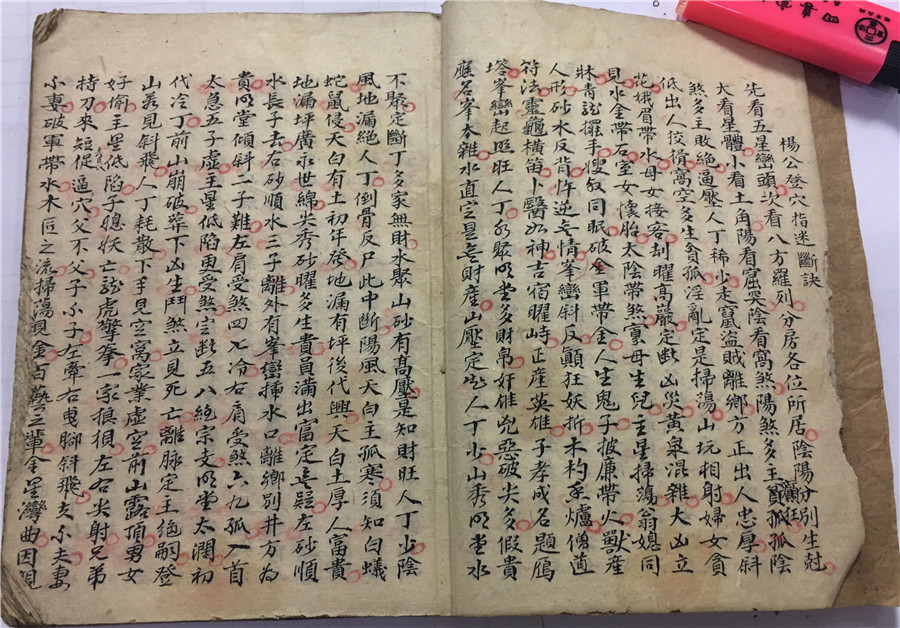 楊公登穴指迷斷訣
先看五星巒頭次看八方羅列分房各位所居陰陽分別生尅
大看星體小看土角陽看窟突陰看窩煞陽煞多主孤孤陰
煞多主敗絕逼壓人丁稀少走竄盜賊離鄉方正出人忠厚斜
低出人狡猾窩空多生貪孤淫亂定是掃蕩山坑相射婦女貪
花娥眉帶水母女接客刮曜高嚴定斷凶災黃泉混雜大凶立
見水金帶石室女懷胎太陰帶煞寡母生兒主星掃蕩翁媳同
牀青龍擺手嫂叔同眠破金軍帶金人生鬼子披廉帶火獸產
人形砂水反背忤逆無情峯巒斜反顛狂妖折木杓香爐僧道
符法靈龜橫笛卜醫如神吉宿曜峙正產英雄子孝成名題鴈
塔峯巒起照旺人丁水聚明堂多財帛奸雄兇惡破尖多假貴
應名峯木雜水直定是無財產山壓定然人丁少山秀明堂水
不聚定斷丁多家無財水聚山砂有高壓是知財旺人丁少陰
風地漏絕人丁倒骨反尸此中斷陽風天白主孤寒須知白蟻
蛇鼠侵天白有土初年發地漏有坪後代興天白土厚人富貴
地漏坪廣永世綿尖秀砂曜多生貴員滿出富定無疑左砂順
水長子去右砂順水三子離外有峯巒插水口離鄉別井方為
貴明堂傾斜二子難左肩受煞四七冷右肩受煞六九孤入首
太急五子虛主星低陷更受煞定斷五八絕宗支明堂太濶初
代冷丁前山崩破藥下凶生鬥煞立見死亡離脉定主絕嗣登
山秀見斜飛人丁耗散下手見空窩家業虛空前山露頂男女
好偷主星低陷子媳妖亡龍虎擎拳一家俱相左右尖射兄弟
持刀來短促逼穴父不父子不子左牽右曳腳斜飛夫不夫妻
不妻破軍帶水木匠之流掃蕩見金百藝之輩金星灣曲因親